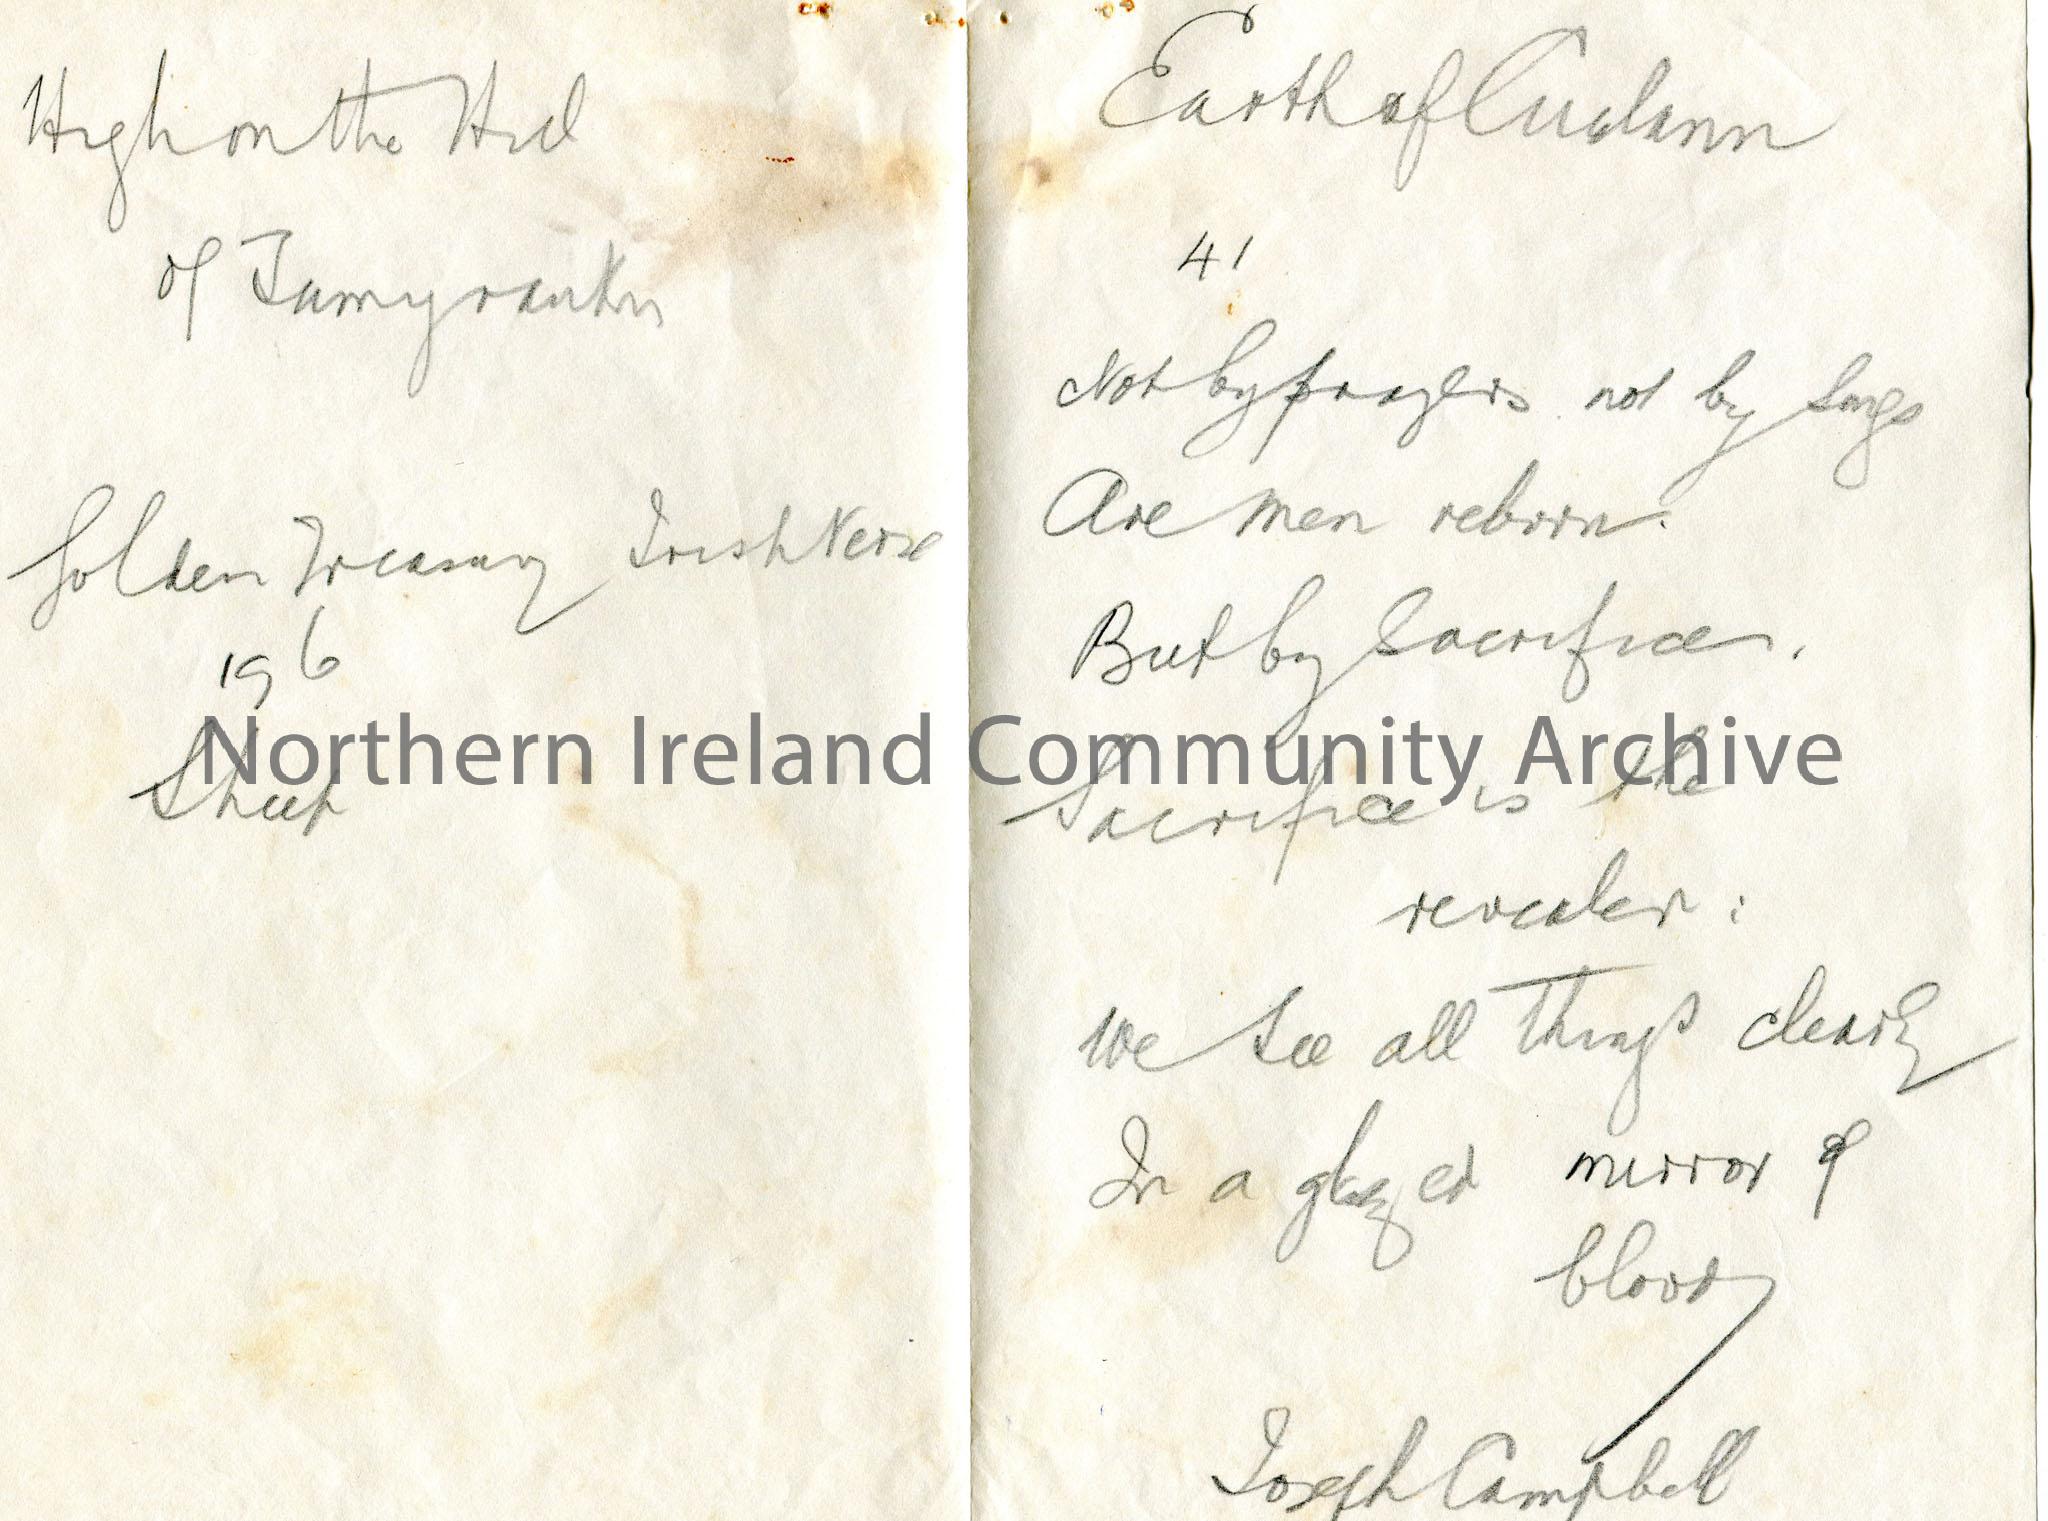 High on the Hill
of Tamyrankin
Golden Treasury Irish Verse
196
Sheep
Earth of Cualann
41
Not by prayers not by songs
Are men reborn.
But by Sacrifice.
Sacrifice is the
revealer :
We see all things clearly
In a glazed mirror of
blood
Joseph Campbell
Northern Ireland Community Archive